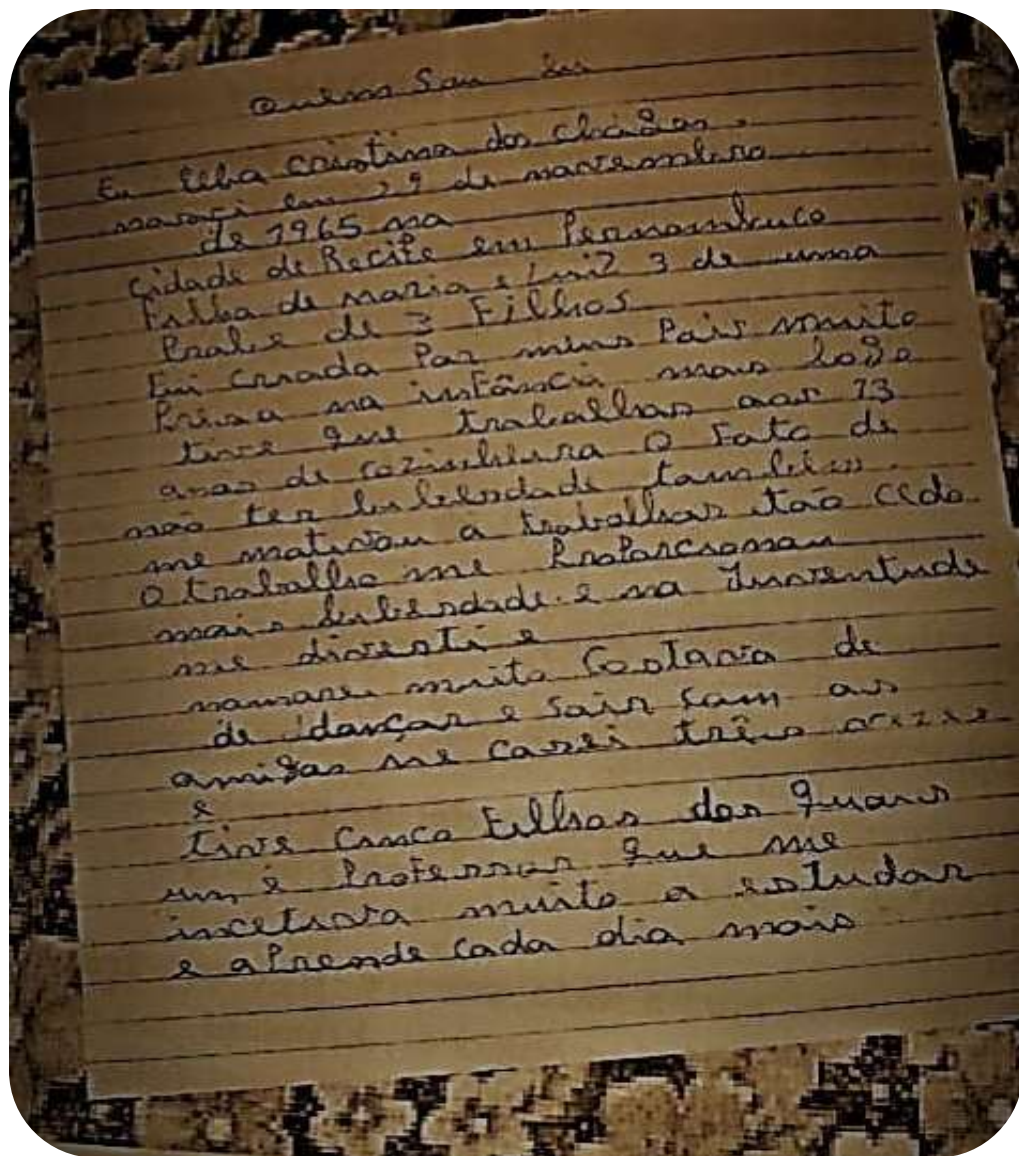 Quem Sou Eu
Eu Cristina das Chagas.
em 29 de novembro
de 1965 na
Cidade de Recife em Pernambuco
Filha de maria e Luiz 3 de uma
Prole de 3 Filhos
Fui criada Por meus Pais muito
Presa na infância mais logo
tive que trabalhar aos 13
anos de cozinheira O Fato de
não ter também
me motivou a trabalhar tão cedo
O trabalho me Proporcionou
mais e na Juventude
me diverti e
namorei muito Gostava de
de dançar e sair com as
amigas me casei três vezes
e
tive cinco Filhos dos quais
um é Professor que me
muito a estudar
e aPrende cada dia mais